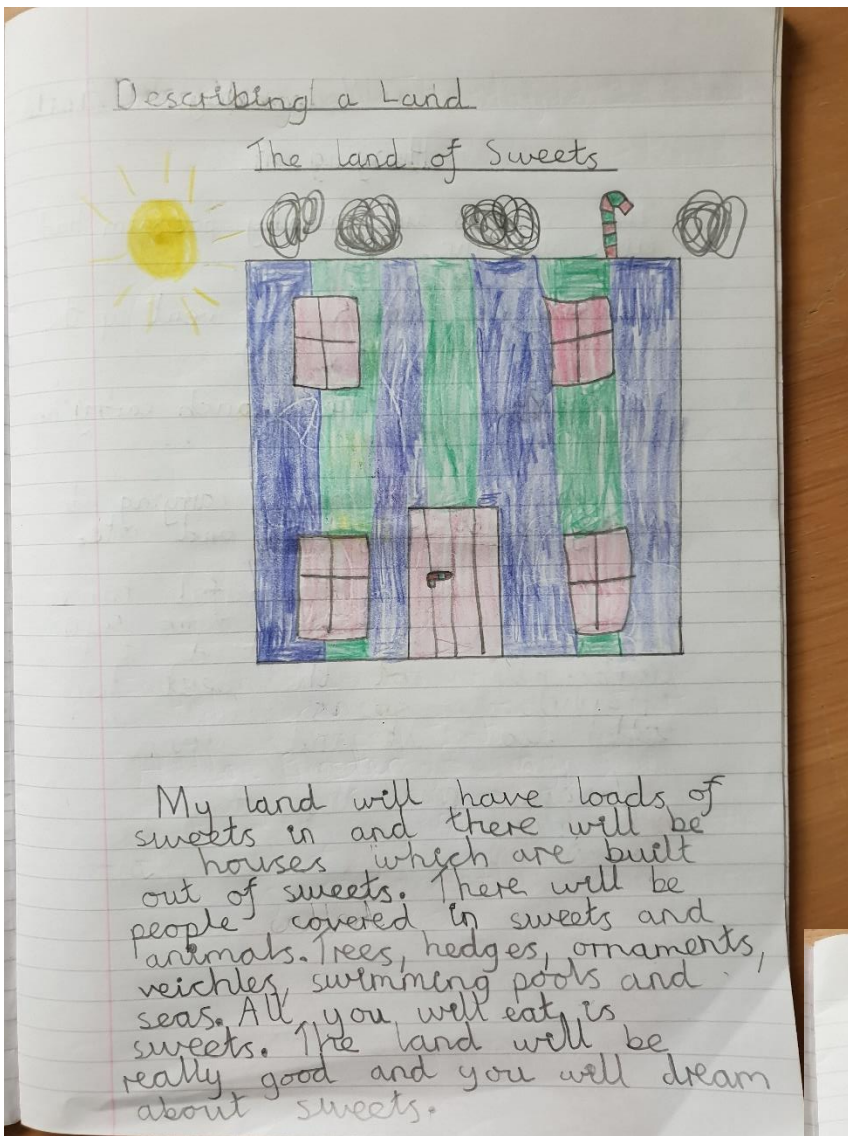 Describing a Land
The land of Sweets
My land will have loads of
sweets in and there will be
houses which are built
out of sweets. There will be
people covered in sweets and
animals. Trees, hedges, ornaments,
veichles, swimming pools and
seas. All you will eat is
sweets. The land will be
really good and you will dream
about sweets.